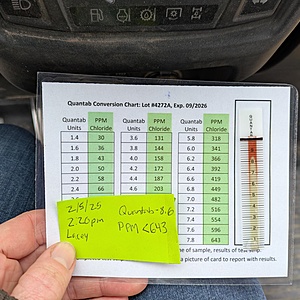 Quantab Conversion Chart: Lot #4272A, Exp. 09/2026
Quantab Units PPM Chloride Quantab Units PPM Chloride Quantab Units PPM Chloride
1.4 30 3.6 131 5.8 318
1.6 36 3.8 144 6.0 341
1.8 43 4.0 158 6.2 366
2.0 50 4.2 172 6.4 392
2.2 58 4.4 187 6.6 419
2.4 66 4.6 203 6.8 449
7.0 482
7.2 516
7.4 554
7.6 597
7.8 643
2/5/25
2:20pm
Lacey
Quantab-8.6
PPM <643
of sample, results of test strip.
a picture of card to report with results.
QUANTAB